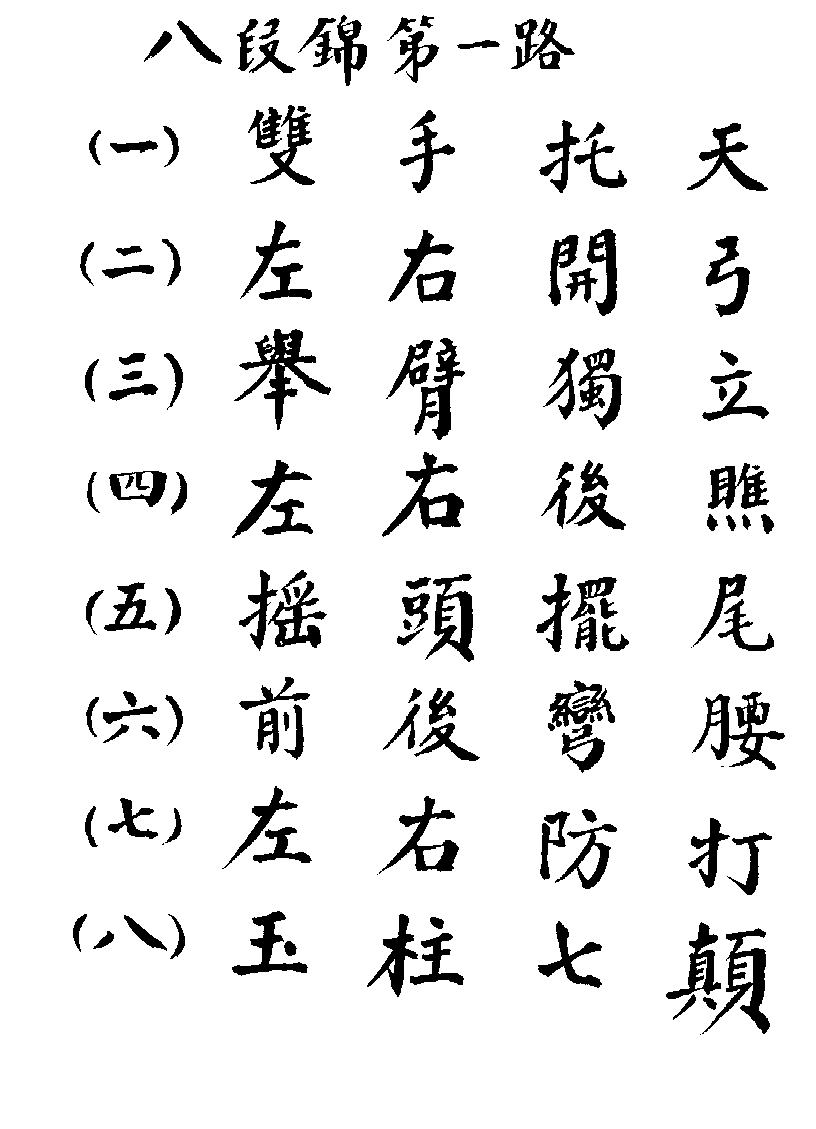 八段錦第一路
(一)雙手托天
(二)左右開弓
(三)舉臂獨立
(四)左右後瞧
(五)摇頭擺尾
(六)前後彎腰
(七)左右防打
(八)玉柱七顛